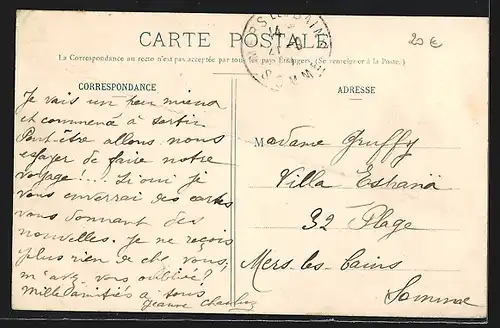 CARTE POSTALE
20 €
MERS LES BAINS
14
21
SOMME
La Correspondance au recto n'est pas acceptée par tous les pays Étrangers (Se renseigner à la Poste.)
CORRESPONDANCE
Je vais un peu mieux
et commence à sortir
Peut-être allons nous
essayer de faire notre
voyage !... Si oui je
vous enverrai des cartes
vous donnant des
nouvelles. Je ne reçois
plus rien de chez vous,
m'avez vous oubliée ?
Mille amitiés à tous
Jeanne
ADRESSE
Madame Gruffy
Villa
32 Plage
Mers-les-Bains
Somme